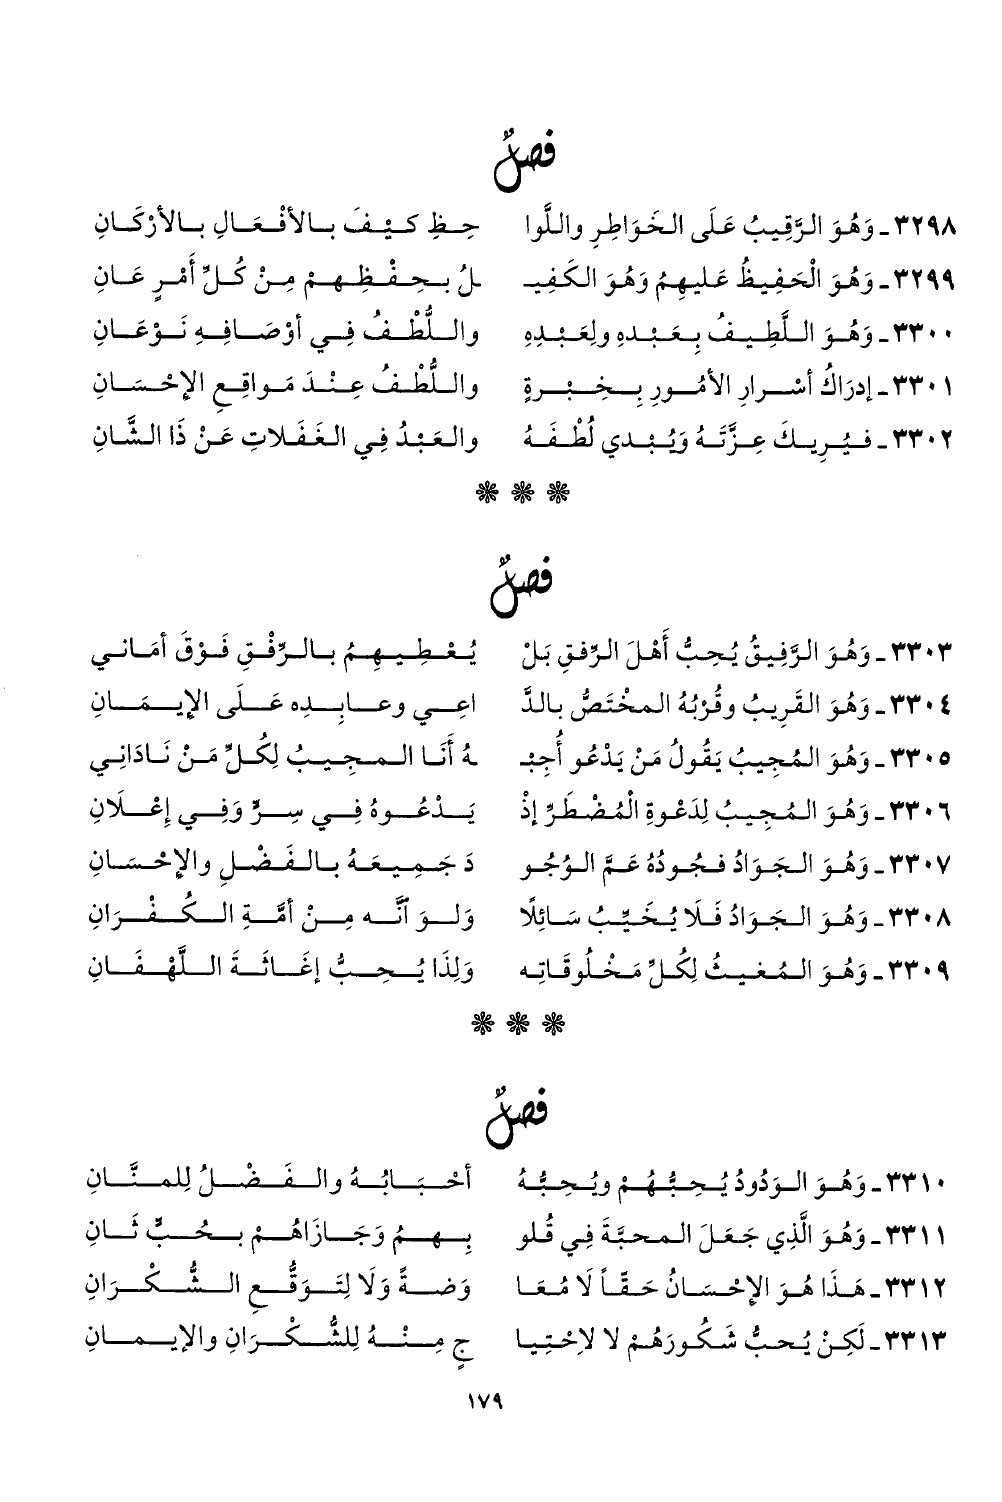 فصلٌ
٣٢٩٨ ـ وَهُوَ الرَّقِيبُ عَلَى الخَوَاطِرِ واللَّوا حِظِ كَيْفَ بالأفْعَالِ بالأرْكَانِ
٣٢٩٩ ـ وَهُوَ الْحَفِيظُ عَلَيهِمُ وَهُوَ الكَفِيـ ـلُ بحِفْظِهمْ مِنْ كُلِّ أَمْرٍ عَانِ
٣٣٠٠ ـ وَهُوَ اللَّطِيفُ بِعَبْدِهِ ولِعَبْدِهِ واللُّطْفُ فِي أوْصَافِهِ نَوْعَانِ
٣٣٠١ ـ إدرَاكُ أسْرارِ الأمُورِ بِخِبْرةٍ واللُّطْفُ عِنْدَ مَواقِعِ الإحْسَانِ
٣٣٠٢ ـ فَيُرِيكَ عِزَّتَهُ وَيُبْدي لُطْفَهُ والعَبْدُ فِي الغَفَلاتِ عَنْ ذَا الشَّانِ
❋ ❋ ❋
فصلٌ
٣٣٠٣ ـ وَهُوَ الرَّفِيقُ يُحِبُّ أَهْلَ الرِّفقِ بَلْ يُعْطِيهِمُ بالرِّفْقِ فَوْقَ أمَاني
٣٣٠٤ ـ وَهُوَ القَرِيبُ وقُرْبُهُ المخْتَصُّ بالدَّ اعِي وعابِدِه عَلَى الإيمَانِ
٣٣٠٥ ـ وَهُوَ المُجِيبُ يَقُولُ مَنْ يَدْعُو أُجِبْـ ـهُ أَنَا المجِيبُ لِكُلِّ مَنْ نَادَانِي
٣٣٠٦ ـ وَهُوَ المُجِيبُ لِدَعْوةِ الْمُضْطَرِّ إذْ يَدْعُوهُ فِي سِرٍّ وَفِي إعْلَانِ
٣٣٠٧ ـ وَهُوَ الجَوَادُ فجُودُهُ عَمَّ الوُجُو دَ جَمِيعَهُ بالفَضْلِ والإحْسَانِ
٣٣٠٨ ـ وَهُوَ الجَوَادُ فَلَا يُخَيِّبُ سَائِلًا وَلَو آنَّه مِنْ أمَّةِ الكُفْرَانِ
٣٣٠٩ ـ وَهُوَ المُغيثُ لِكُلِّ مَخْلُوقَاتِه وَلِذَا يُحِبُّ إغَاثَةَ اللَّهْفَانِ
❋ ❋ ❋
فصلٌ
٣٣١٠ ـ وَهُوَ الوَدُودُ يُحِبُّهُمْ ويُحِبُّهُ أحْبَابُهُ والفَضْلُ لِلمنَّانِ
٣٣١١ ـ وَهُوَ الَّذِي جَعَلَ المحبَّةَ فِي قُلو بِهِمُ وَجَازَاهُمْ بحُبٍّ ثَانِ
٣٣١٢ ـ هَذَا هُوَ الإحْسَانُ حَقّاً لَا مُعَا وَضةً وَلَا لِتَوَقُّعِ الشُّكْرَانِ
٣٣١٣ ـ لَكِنْ يُحبُّ شَكُورَهُمْ لا لاحْتِيا جٍ مِنْهُ لِلشُّكْرَانِ والإيمانِ
١٧٩